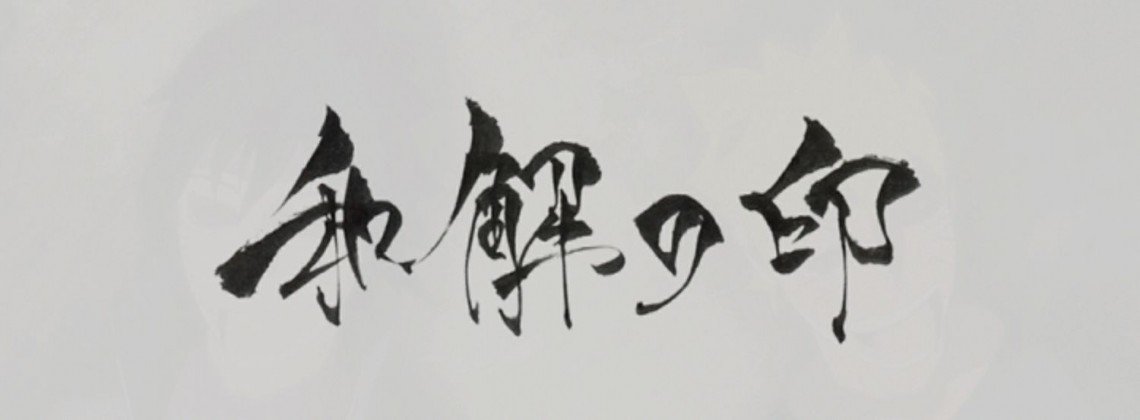 和解の印